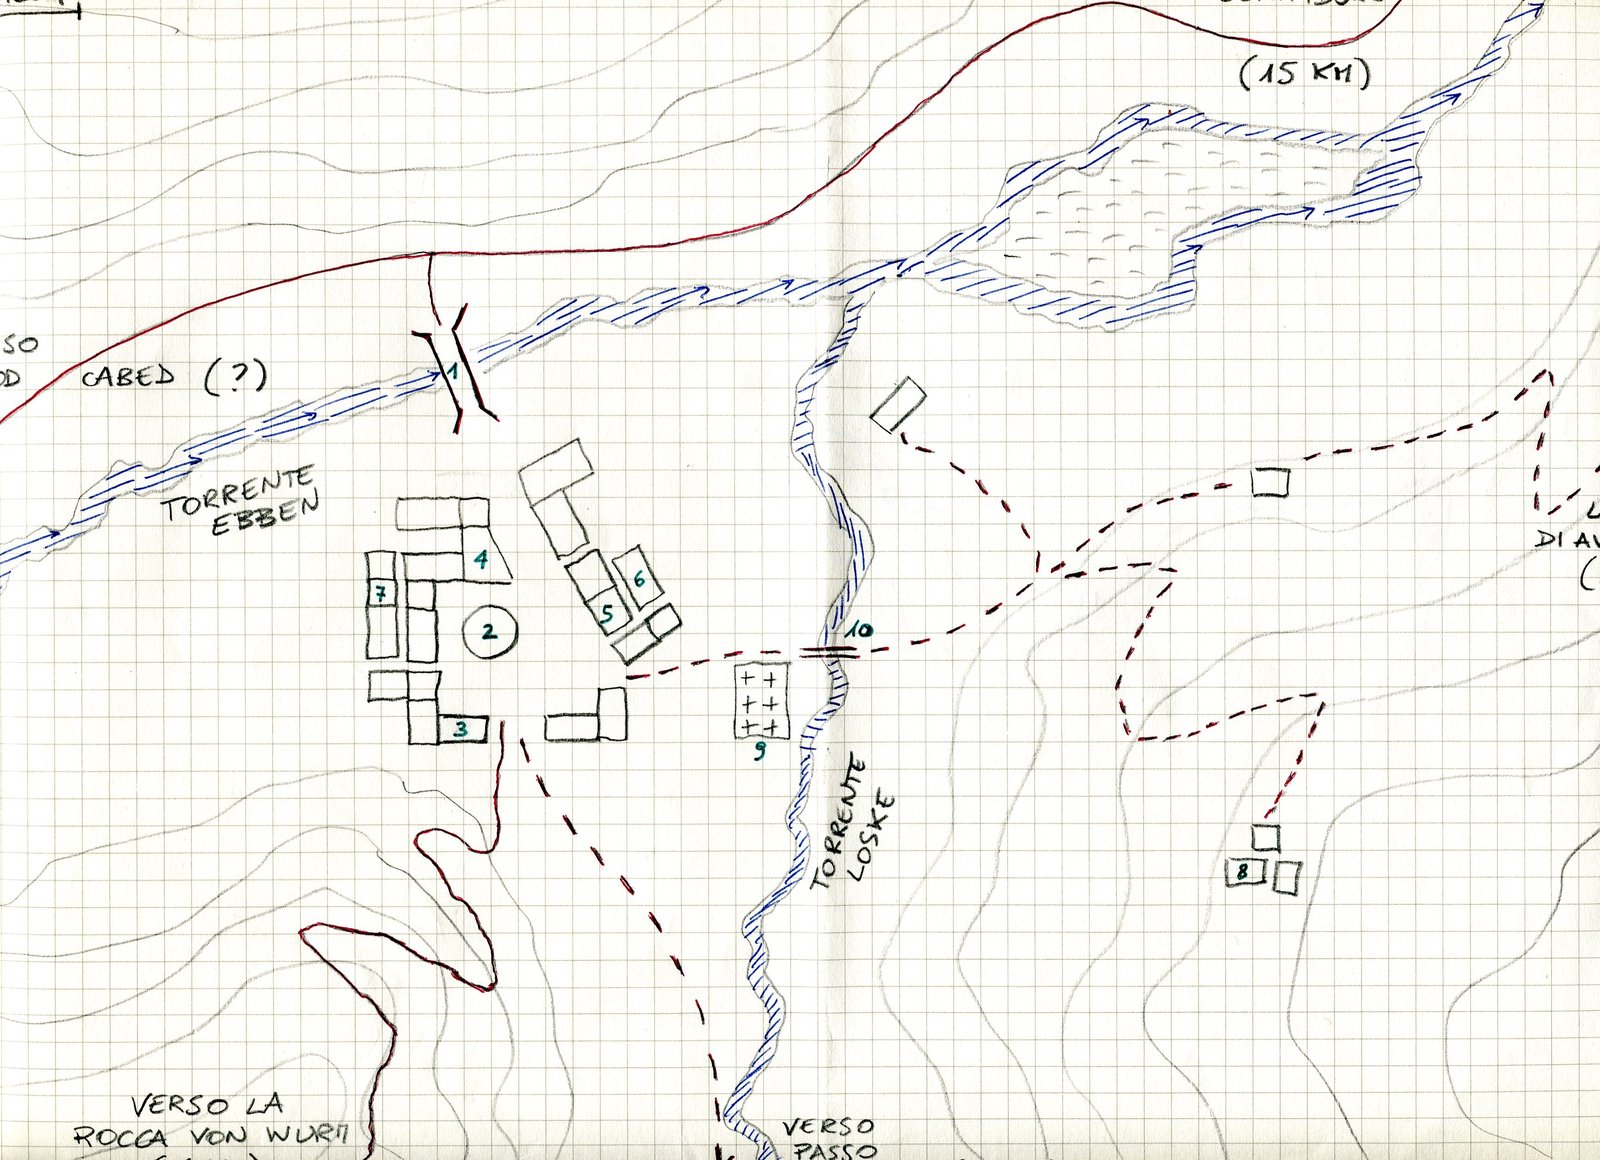 (15 KM)
SO
OD
CABED (?)
1
TORRENTE
EBBEN
4
7
6
5
2
10
3
9
DI AV
(
TORRENTE
LOSKE
8
VERSO LA
ROCCA VON WURM
VERSO
PASSO